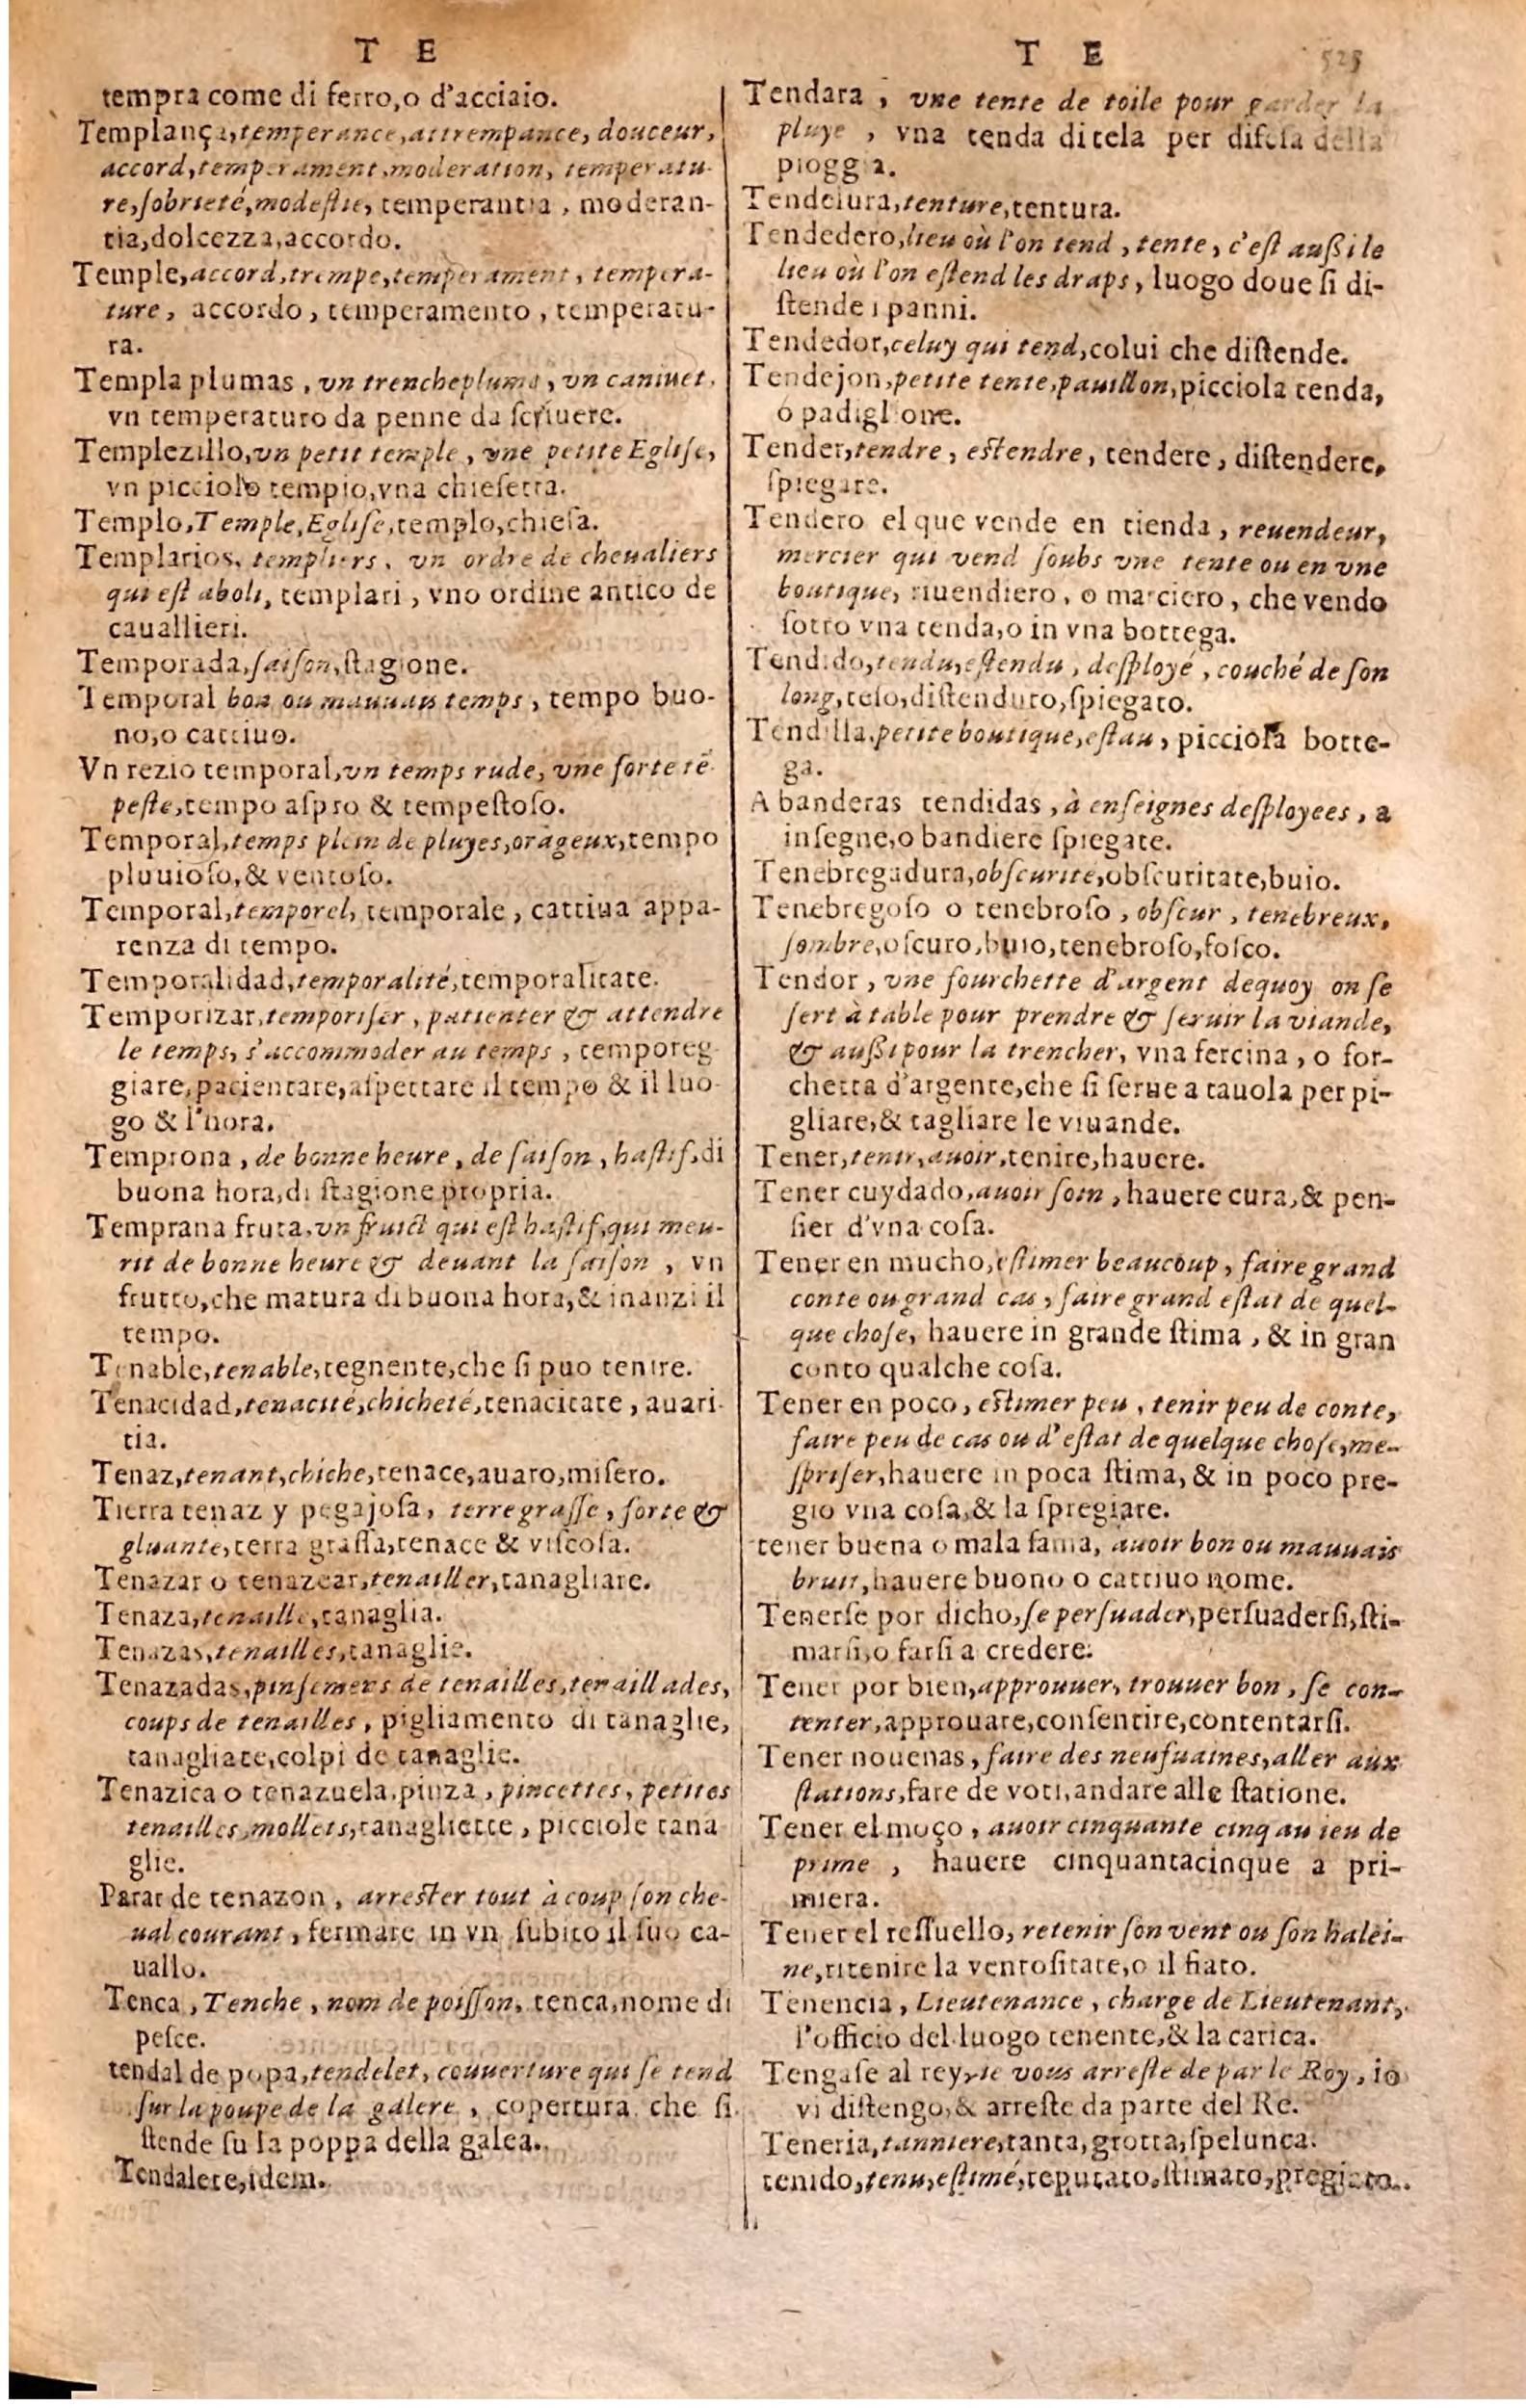 T E
tempra come di ferro,o d'acciaio.
Templança,temperance,attrempance, douceur,
accord,temperament,moderation, temperatu-
re,ſobrieté,modeſtie, temperantia, moderan-
tia,dolcezza,accordo.
Temple,accord,trempe,temperament, tempera-
ture, accordo, temperamento, temperatu-
ra.
Templa plumas, vn trencheplume, vn caniuet,
vn temperaturo da penne da ſcriuere.
Templezillo,vn petit temple, vne petite Egliſe,
vn picciolo tempio,vna chieſetta.
Templo,Temple,Egliſe,templo,chieſa.
Templarios, templiers, vn ordre de cheualiers
qui eſt aboli, templari, vno ordine antico de
cauallieri.
Temporada,ſaiſon,ſtagione.
Temporal bon ou mauuau temps, tempo buo-
no,o cattiuo.
Vn rezio temporal,vn temps rude, vne forte tẽ-
peſte,tempo aſpro & tempeſtoſo.
Temporal,temps plein de pluyes,orageux,tempo
pluuioſo,& ventoſo.
Temporal,temporel, temporale, cattiua appa-
renza di tempo.
Temporalidad,temporalité,temporalitate.
Temporizar,temporiſer, patienter & attendre
le temps, s'accommoder au temps, temporeg-
giare,pacientare,aſpettare il tempo & il luo-
go & l'hora.
Temprona, de bonne heure, de ſaiſon, haſtif,di
buona hora,di ſtagione propria.
Temprana fruta,vn fruict qui eſt haſtif,qui meu-
rit de bonne heure & deuant la ſaiſon, vn
frutto,che matura di buona hora,& inanzi il
tempo.
Tenable,tenable,tegnente,che ſi puo tenire.
Tenacidad,tenacité,chicheté,tenacitate, auari-
tia.
Tenaz,tenant,chiche,tenace,auaro,miſero.
Tierra tenaz y pegajoſa, terre graſſe, forte &
gluante,terra graſſa,tenace & viſcoſa.
Tenazar o tenazear,tenailler,tanagliare.
Tenaza,tenaille,tanaglia.
Tenazas,tenailles,tanaglie.
Tenazadas,pinſemens de tenailles,tenaillades,
coups de tenailles, pigliamento di tanaglie,
tanagliate,colpi de tanaglie.
Tenazica o tenazuela,pinza, pincettes, petites
tenailles,mollets,tanagliette, picciole tana
glie.
Parar de tenazon, arreſter tout à coup ſon che-
ual courant, fermare in vn ſubito il ſuo ca-
uallo.
Tenca, Tenche, nom de poiſſon, tenca,nome di
peſce.
tendal de popa,tendelet, couuerture qui ſe tend
ſur la poupe de la galere, copertura che ſi
ſtende ſu la poppa della galea.
Tendalete,idem.
T E 525
Tendara, vne tente de toile pour garder la
pluye, vna tenda di tela per difeſa della
pioggia.
Tendeiura,tenture,tentura.
Tendedero,lieu où l'on tend, tente, c'eſt auſſi le
lieu où l'on eſtend les draps, luogo doue ſi di-
ſtende i panni.
Tendedor,celuy qui tend,colui che diſtende.
Tendejon,petite tente,pauillon,picciola tenda,
o padiglione.
Tender,tendre, eſtendre, tendere, diſtendere,
ſpiegare.
Tendero el que vende en tienda, reuendeur,
mercier qui vend ſoubs vne tente ou en vne
boutique, riuendiero, o marciero, che vendo
ſotto vna tenda,o in vna bottega.
Tendido,tendu,eſtendu, deſployé, couché de ſon
long,teſo,diſtenduto,ſpiegato.
Tendilla,petite boutique,eſtau, picciola botte-
ga.
A banderas tendidas, à enſeignes deſployees, a
inſegne,o bandiere ſpiegate.
Tenebregadura,obſcurité,obſcuritate,buio.
Tenebregoſo o tenebroſo, obſcur, tenebreux,
ſombre,oſcuro,buio,tenebroſo,foſco.
Tendor, vne fourchette d'argent dequoy on ſe
ſert à table pour prendre & ſeruir la viande,
& auſſi pour la trencher, vna fercina, o for-
chetta d'argente,che ſi ſerue a tauola per pi-
gliare,& tagliare le viuande.
Tener,tenir,auoir,tenire,hauere.
Tener cuydado,auoir ſoin, hauere cura,& pen-
ſier d'vna coſa.
Tener en mucho,eſtimer beaucoup, faire grand
conte ou grand cas, faire grand eſtat de quel-
que choſe, hauere in grande ſtima, & in gran
conto qualche coſa.
Tener en poco, eſtimer peu, tenir peu de conte,
faire peu de cas ou d'eſtat de quelque choſe,me-
ſpriſer,hauere in poca ſtima, & in poco pre-
gio vna coſa,& la ſpregiare.
tener buena o mala fama, auoir bon ou mauuais
bruit,hauere buono o cattiuo nome.
Tenerſe por dicho,ſe perſuader,perſuaderſi,ſti-
marſi,o farſi a credere.
Tener por bien,approuuer, trouuer bon, ſe con-
tenter,approuare,conſentire,contentarſi.
Tener nouenas, faire des neufuaines,aller aux
ſtations,fare de voti,andare alle ſtatione.
Tener el moço, auoir cinquante cinq au ieu de
prime, hauere cinquantacinque a pri-
miera.
Tener el reſſuello, retenir ſon vent ou ſon halei-
ne,ritenire la ventoſitate,o il fiato.
Tenencia, Lieutenance, charge de Lieutenant,
l'officio del luogo tenente,& la carica.
Tengaſe al rey,ie vous arreſte de par le Roy, io
vi diſtengo,& arreſte da parte del Re.
Teneria,tanniere,tanta,grotta,ſpelunca.
tenido,tenu,eſtimé,reputato,ſtimato,pregiato.